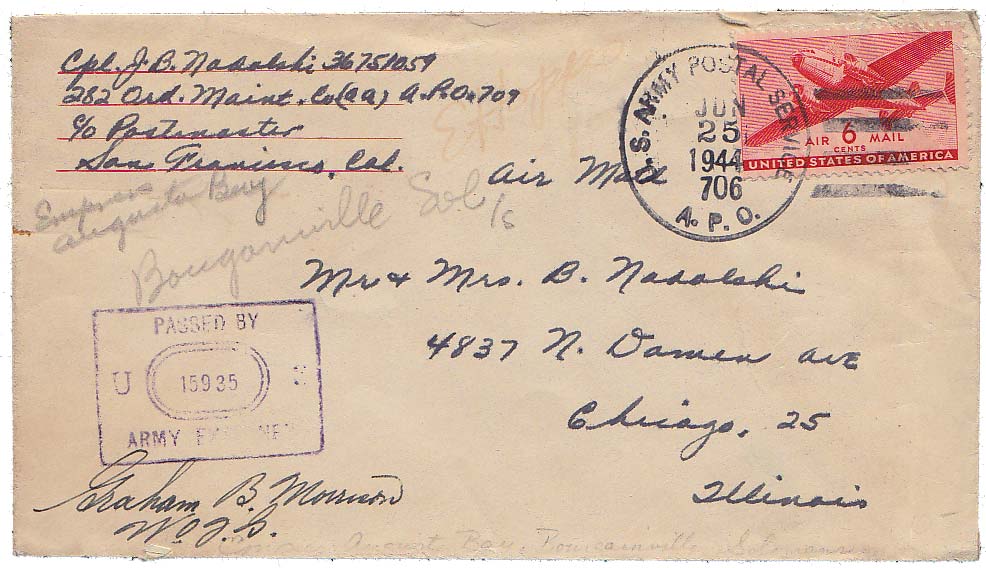 Cpl. J. B. Nadolski 36751059
282 Ord. Maint. Co (aa) A.P.O. 709
c/o Postmaster
San Francisco, Cal.
Air Mail
U.S. ARMY POSTAL SERVICE
JUN
25
1944
706
A. P. O.
AIR 6 MAIL
CENTS
UNITED STATES OF AMERICA
Empress
Augusta Bay
Bouganville Sol Is
Mr & Mrs. B. Nadolski
4837 N. Damen ave
Chicago, 25
Illinois
PASSED BY
U 15935 S
ARMY EXAMINER
Graham B. Morrison
W.O.J.G.
August Bay, Bougainville Solomans